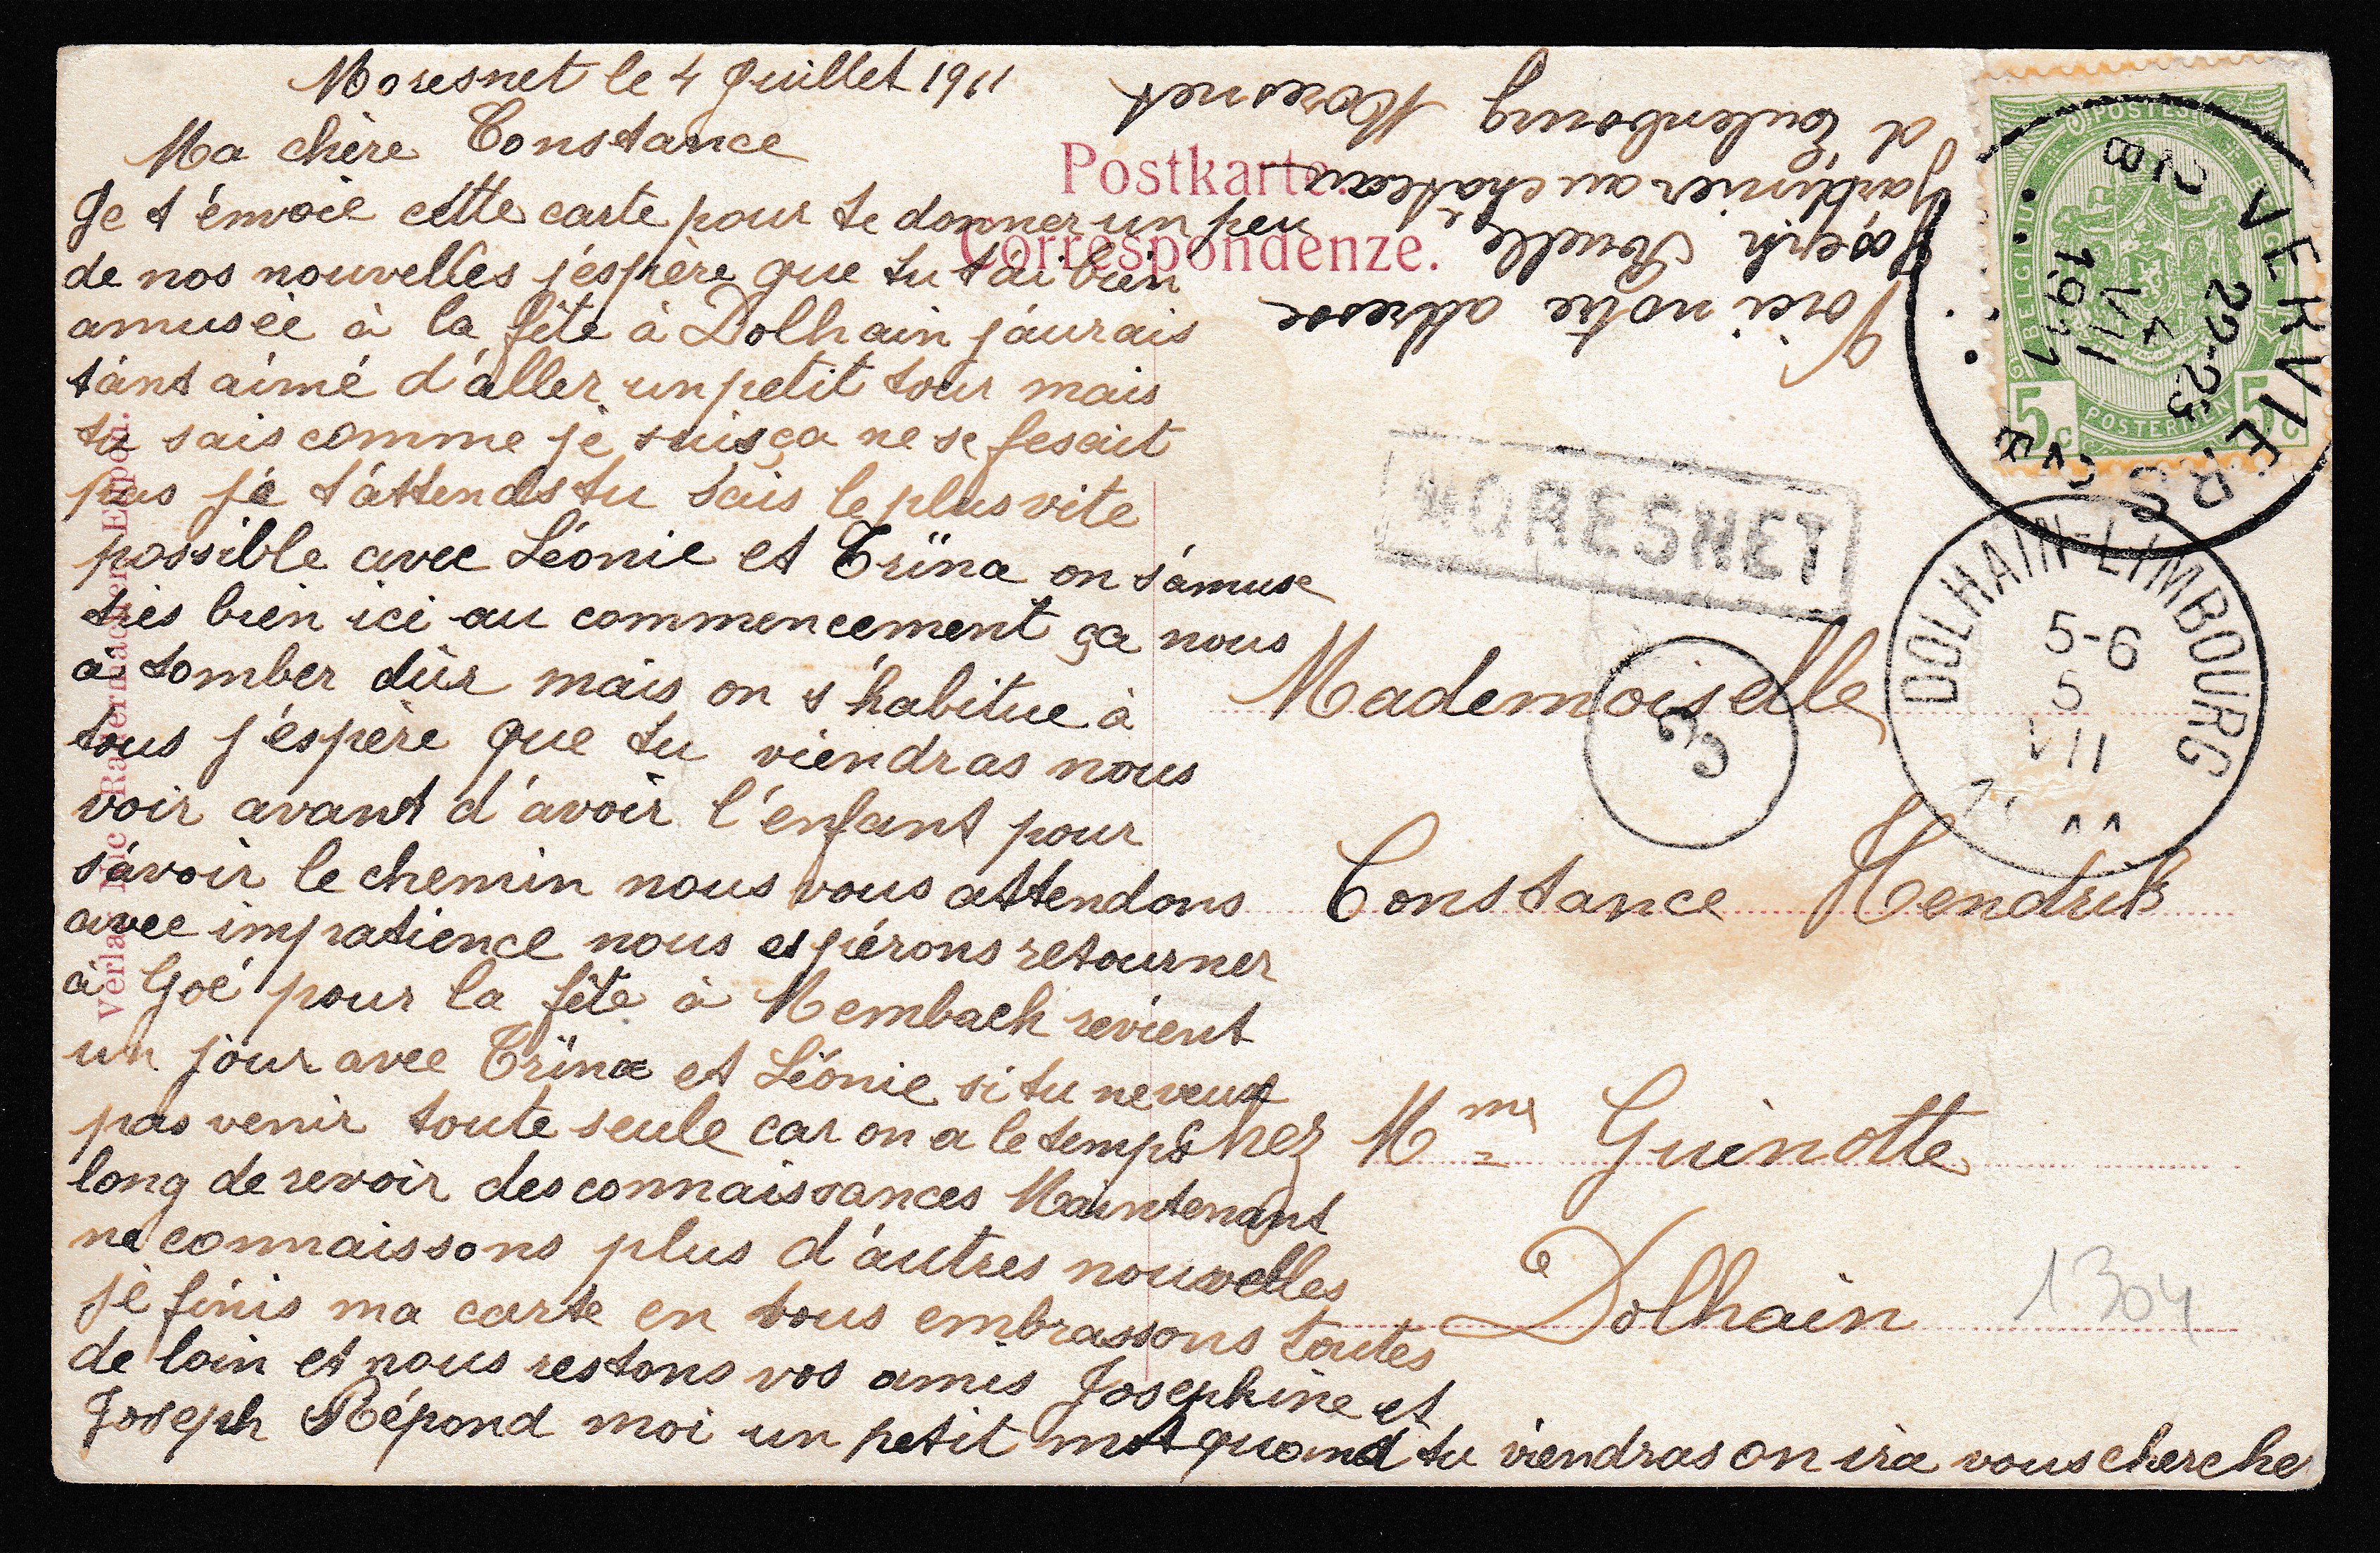 Moresnet le 4 Juillet 1911
Ma chère Constance
Je t'envoie cette carte pour te donner un peu
de nos nouvelles j'espère que tu t'ai bien
amusée à la fête à Dolhain j'aurais
tant aimé d'aller un petit tour mais
tu sais comme je suis ça ne se fesait
pas je t'attends tu sais le plus vite
possible avec Léonie et Trïna on s'amuse
très bien ici au commencement ça nous
à tomber dûr mais on s'habitue à
tous j'espère que tu viendras nous
voir avant d'avoir l'enfant pour
savoir le chemin nous vous attendons
avec impatience nous espérons retourner
à Goé pour la fête à Membach revient
un jour avec Trïna et Léonie si tu ne veux
pas venir toute seule car on a le temps
long de revoir des connaissances Maintenant
ne connaissons plus d'autres nouvelles
je finis ma carte en vous embrassons toutes
de loin et nous restons vos amis Josephine et
Joseph Répond moi un petit mot quand tu viendras on ira vous cherche
Voici notre adresse
Joseph
Jardinier au chateau
d'Eulenbourg Moresnet
Postkarte.
Correspondenze.
BELGIQUE
POSTES
POSTERIJEN
5c 5c
VERVIERS
22-23
4
VII
1911
MORESNET
DOLHAIN-LIMBOURG
5-6
5
VII
Mademoiselle
Constance Hendrik
chez Mme Guinotte
Dolhain
1304